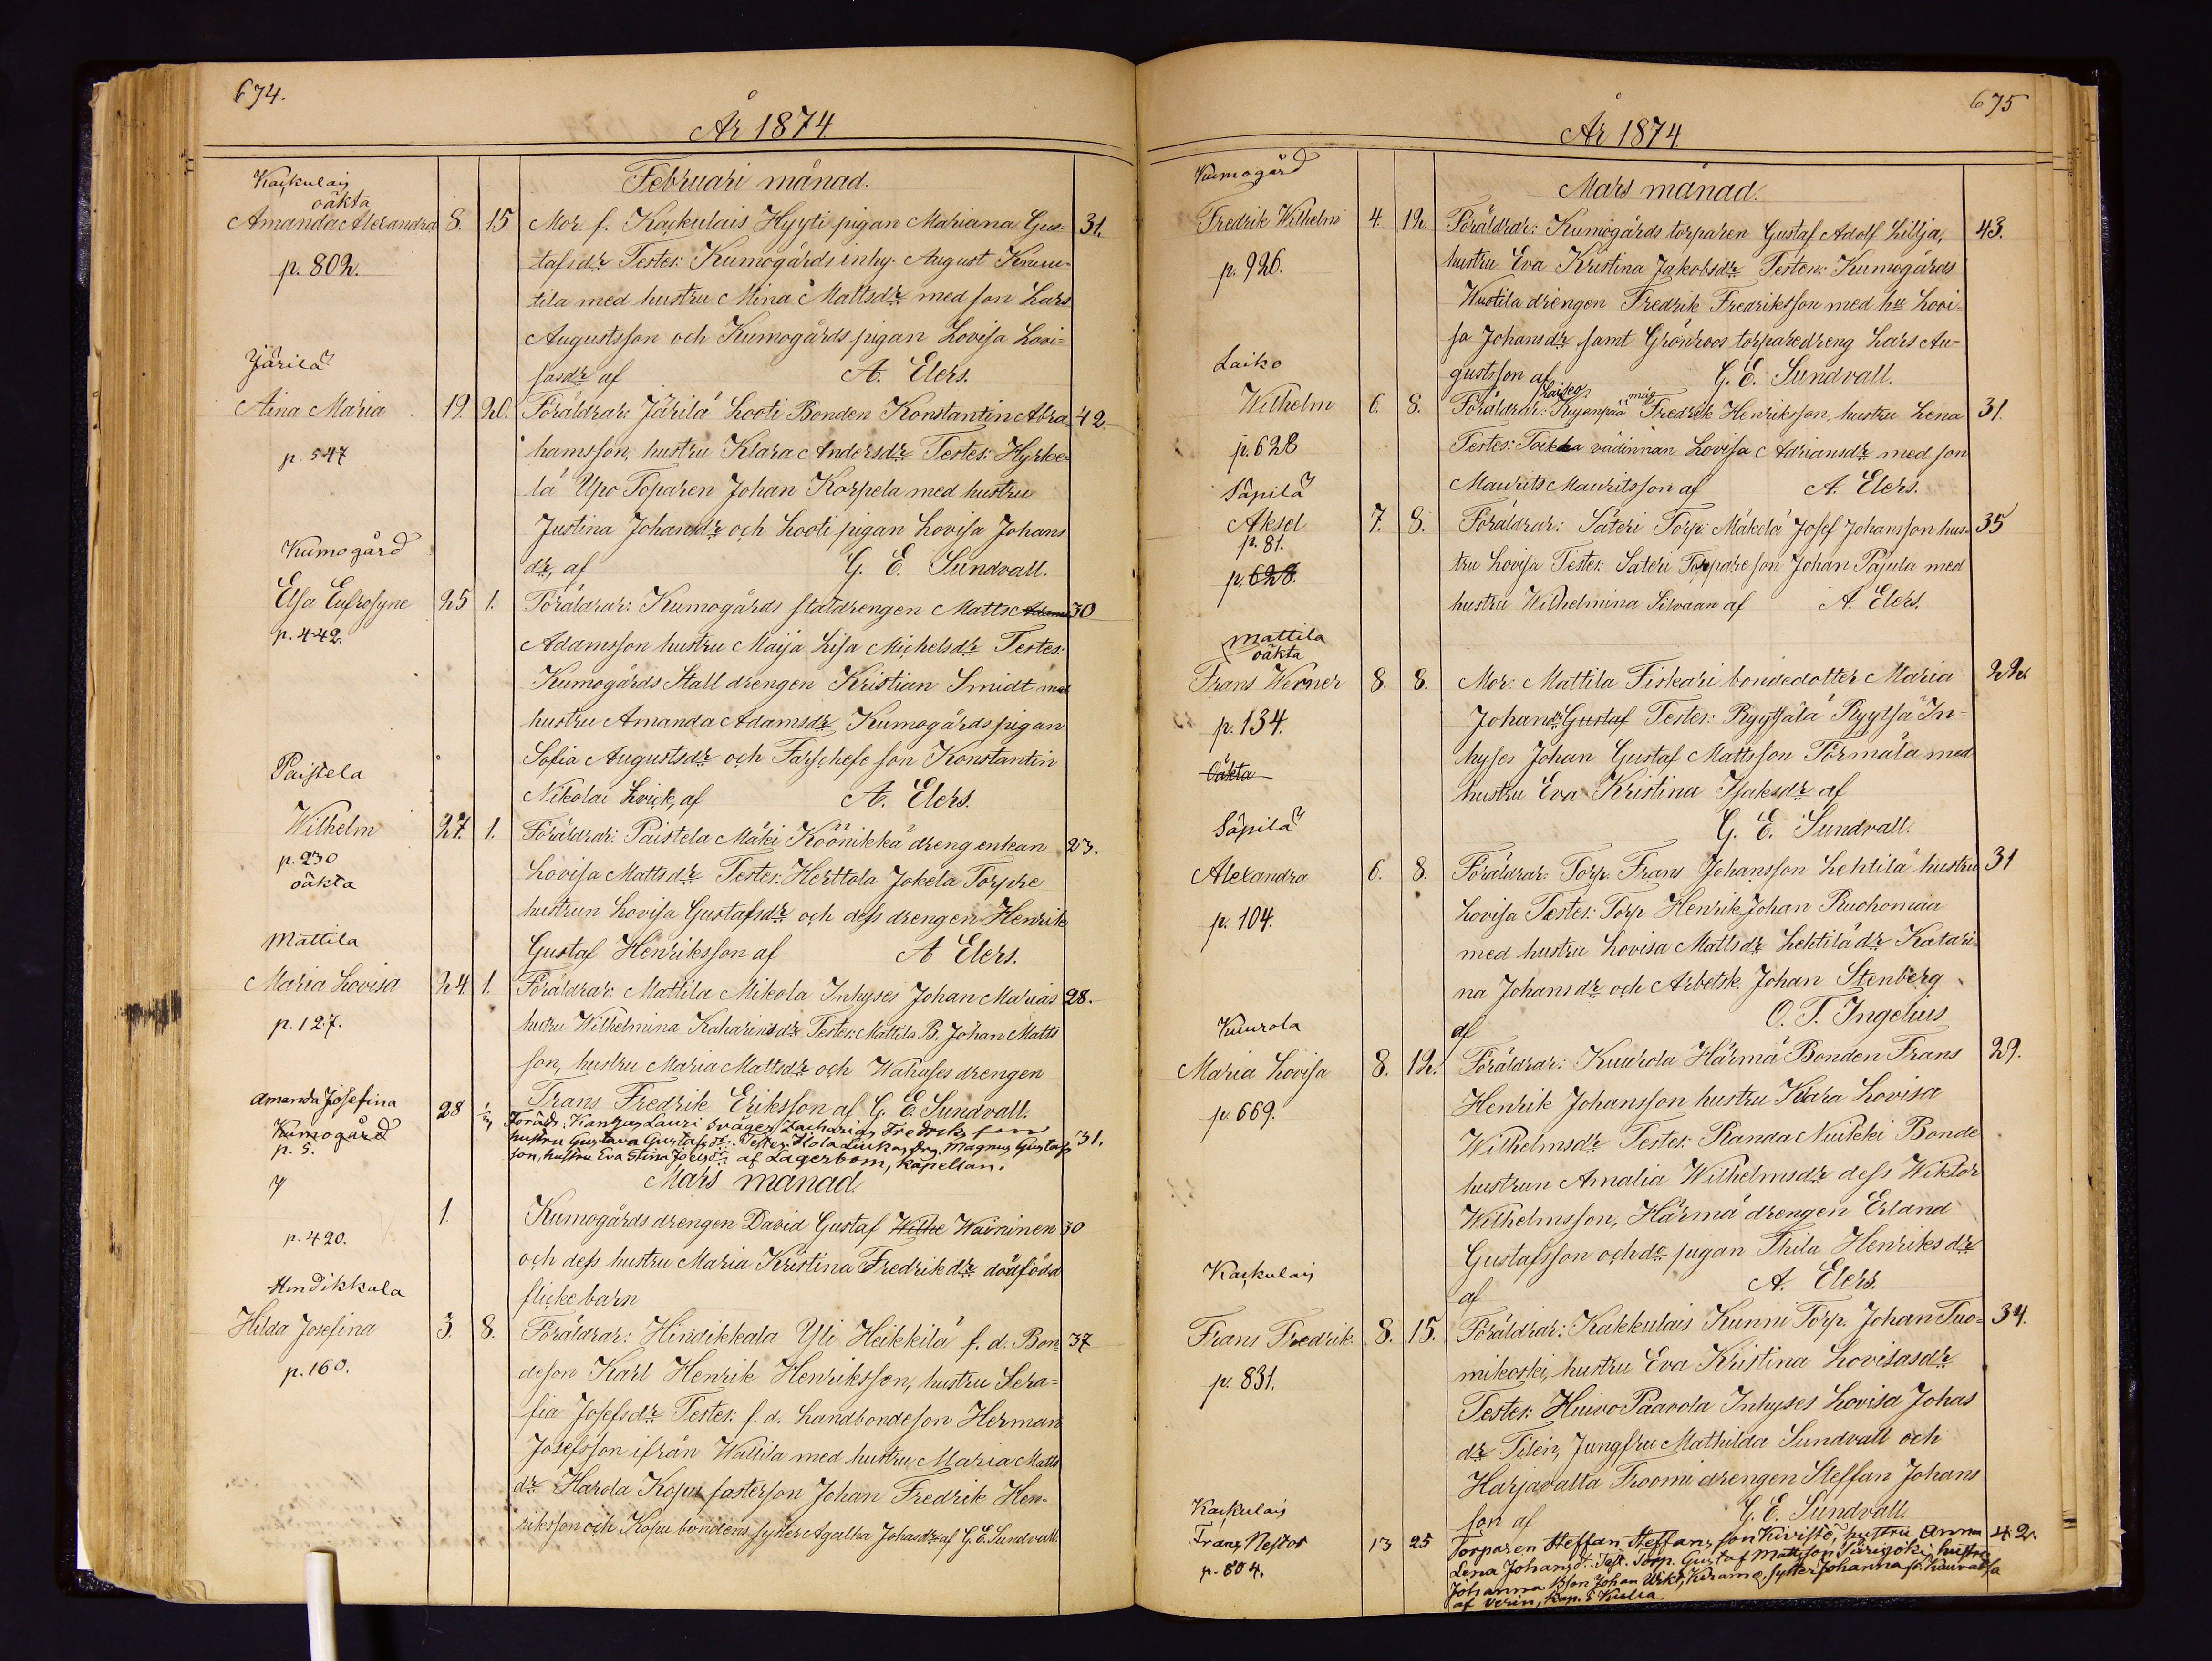 674.
År 1874
Februari månad.
Kackulais
oäkta
Amanda Alexandra 8. 15 Mor f. Kackulais Hyyti pigan Mariana Gus- 31.
p. 802. tafsdr Testes: Kumogårds inhy. August Knuu-
tila med hustru Mina Mattsdr med son Lars
Augustsson och Kumogårds pigan Lovisa Lovi-
sasdr af A. Elers.
Järilä
Aina Maria 19. 20. Föräldrar: Järilä Looti Bonden Konstantin Abra- 42.
hamsson, hustru Klara Andersdr Testes: Hyrke-
p. 547
lä Upo Toparen Johan Korpela med hustru
Justina Johansdr och Looti pigan Lovisa Johans
dr, af G. E. Sundvall.
Kumogård
Elsa Eufrosyne 25 1. Föräldrar: Kumogårds staldrengen Matts Adams 30
p. 442.
Adamsson hustru Maija Lisa Michelsdr Testes:
Kumogårds Stall drengen Kristian Smidt med
hustru Amanda Adamsdr Kumogårds pigan
Sofia Augustsdr och Farschefs son Konstantin
Nikolai Lvick, af A. Elers.
Paistela
Wilhelm 27. 1. Föräldrar: Paistela Mäki Köönikkä dreng enkan 23.
p. 230
oäkta
Lovisa Mattsdr Testes: Herttola Jokela Torpare
hustrun Lovisa Gustafsdr och dess drengen Henrik
Gustaf Henriksson af A Elers.
Mattila
Maria Lovisa 24. 1. Föräldrar: Mattila Mikola Inhyses Johan Marias 28.
p. 127.
hustru Wilhelmina Kaharinsdr Testes: Mattila B. Johan Matts
son, hustru Maria Mattsdr och Wahases drengen
Frans Fredrik Eriksson af G. E. Sundvall.
Amanda Josefina 28 1/3 Föräldr. Kankas Lauri svåger Zacharias Fredriks son
Kumogård
p. 5.
hustru Gustava Gustafsdr. Testes: Hola Liukas drg. Magnus Gustafs 31.
son, hustru Eva Stina Joelsdr. af Lagerbom, kapellan.
Mars månad.
1. Kumogårds drengen David Gustaf Wilhe Wäininen 30
p. 420.
och dess hustru Maria Kristina Fredrikdr dödfödd
flicke barn
Hindikkala
Hilda Josefina 3. 8. Föräldrar: Hindikkala Yli Heikkilä f. d. Bon- 37
p. 160.
deson Karl Henrik Henriksson, hustru Sera-
fia Josefsdr Testes: f. d. Landbondeson Herman
Josefsson ifrån Wallila med hustru Maria Matts
dr Harola Kopu fasterson Johan Fredrik Hen-
riksson och Kopu bondens syster Agatha Johansdr af G. E. Sundvall.
675
År 1874.
Mars månad.
Kumogård
Fredrik Wilhelm 4. 12. Föräldrar: Kumogårds torparen Gustaf Adolf Lillja, 43.
p. 926.
hustru Eva Kristina Jakobsdr Testes: Kumogårds
Wuotila drengen Fredrik Fredriksson med hu Lovi-
sa Johansdr samt Grönroos torparedreng Lars Au-
gustsson af G. E. Sundvall.
Laiko
Wilhelm 6. 8. Föräldrar: Kujanpää Fredrik Henriksson, hustru Lena 31.
p. 628
Testes: Toikka vädinnan Lovisa Adriansdr med son
Maurits Mauritsson af A. Elers.
Säpilä
Aksel 7. 8. Föräldrar: Säteri Torp. Mäkelä Josef Johansson hus- 35
p. 81.
p. 628.
tru Lovisa Testes: Säteri Torpare son Johan Pajula med
hustru Wilhelmina Silvaan af A. Elers.
Mattila
oäkta
Frans Werner 8. 8. Mor: Mattila Fiskari bondedotter Maria 22.
p. 134.
Johansdr Gustaf Testes: Ryyttälä Ryytsä In-
hyses Johan Gustaf Mattsson Törmälä med
oäkta
hustru Eva Kristina Isaksdr af
G. E. Sundvall.
Säpilä
Alexandra 6. 8. Föräldrar: Torp. Frans Johansson Lehtilä hustru 31
p. 104.
Lovisa Testes: Torp Henrik Johan Ruohomaa
med hustru Lovisa Mattsdr Lehtilä dr Katari-
na Johansdr och Arbetsk. Johan Stenberg
af O. T. Ingelius
Kuurola
Maria Lovisa 8. 12. Föräldrar: Kuurola Härmä Bonden Frans 29.
p. 669.
Henrik Johansson hustru Klara Lovisa
Wilhelmsdr Testes: Randa Nuikki Bonde
hustrun Amalia Wilhelmsdr dess Wiktor
Wilhelmsson, Härmä drengen Erland
Gustafsson och do pigan Thila Henriksdr
af A. Elers.
Kackulais
Frans Fredrik. 8. 15. Föräldrar: Kakkulais Kunni Torp. Johan Tuo- 34.
p. 831.
mikoski, hustru Eva Kristina Lovisasdr
Testes: Huivo Paavola Inhyses Lovisa Johas
dr Tilén, Jungfru Mathilda Sundvall och
Harjavalta Troomi drengen Steffan Johans
son af G. E. Sundvall.
Kackulais
Frans Nestor 13 25 Torparen Steffan Steffans son Kivistö, hustru Anna 42.
p. 804.
Lena Johansdr. Test. Torp. Gustaf Mattsson Särisöki, hustru
Johanna Bson Johan syster Johanna fr. Kauvatsa
af Verin, kap. i Kulla.